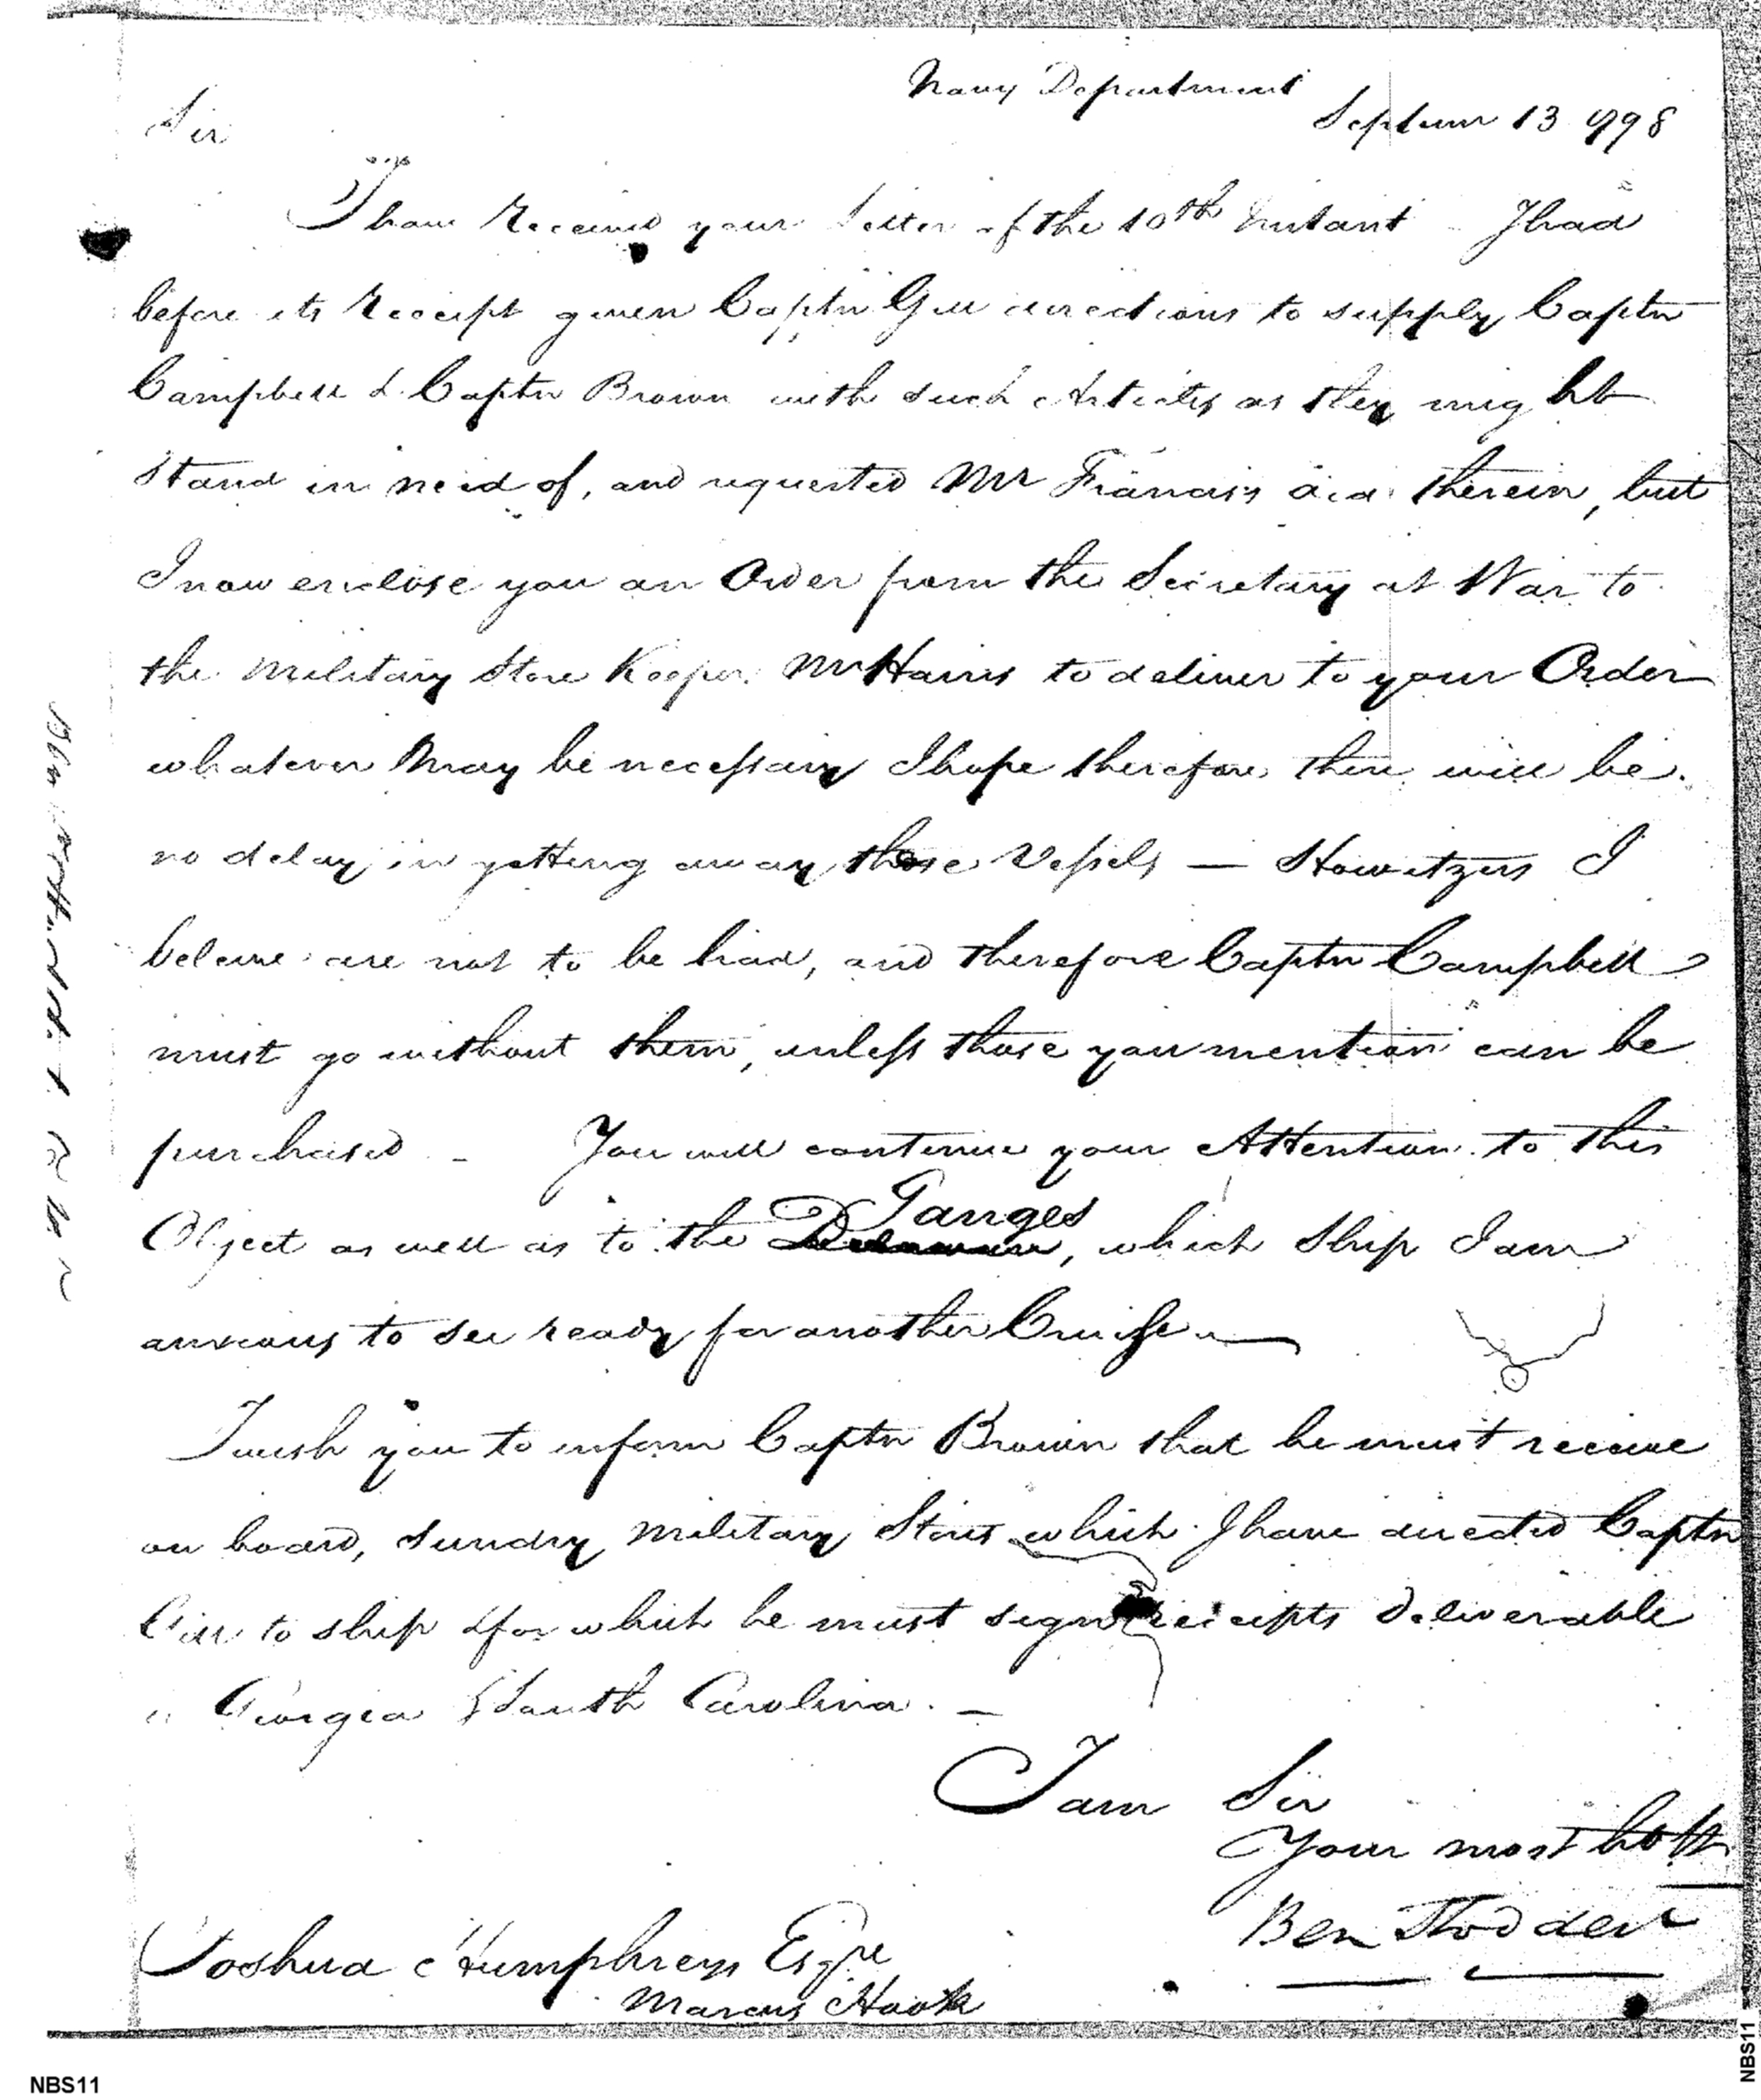 Navy Department
Septemr 13 1798
Sir
I have Received your Letter of the 10th Instant I had
before its Receipt given Captn Gill directions to supply Captn
Campbell & Captn Brown with such Articles as they might
stand in need of, and requested Mr Francis's aid therein, but
I now enclose you an Order from the Secretary at War to
the Military Store Keeper Mr Harris to deliver to your Order
whatever may be necessary I hope therefore there will be
no delay in getting away those Vessels — Howitzers I
beleive are not to be had, and therefore Captn Campbell
must go without them, unless those you mention can be
purchased – You will continue your Attention to this
Ganges
Object as well as to the Delaware, which Ship I am
anxious to see ready for another Cruise —
I wish you to inform Captn Brown that he must receive
on board, sundry Military Stores which I have directed Captn
Gill to ship & for which he must sign receipts deliverable
in Georgia & South Carolina. —
I am Sir
Your most hble
Ben Stoddert
Joshua Humphreys Esqre
Marcus Hook
NBS11
NBS11